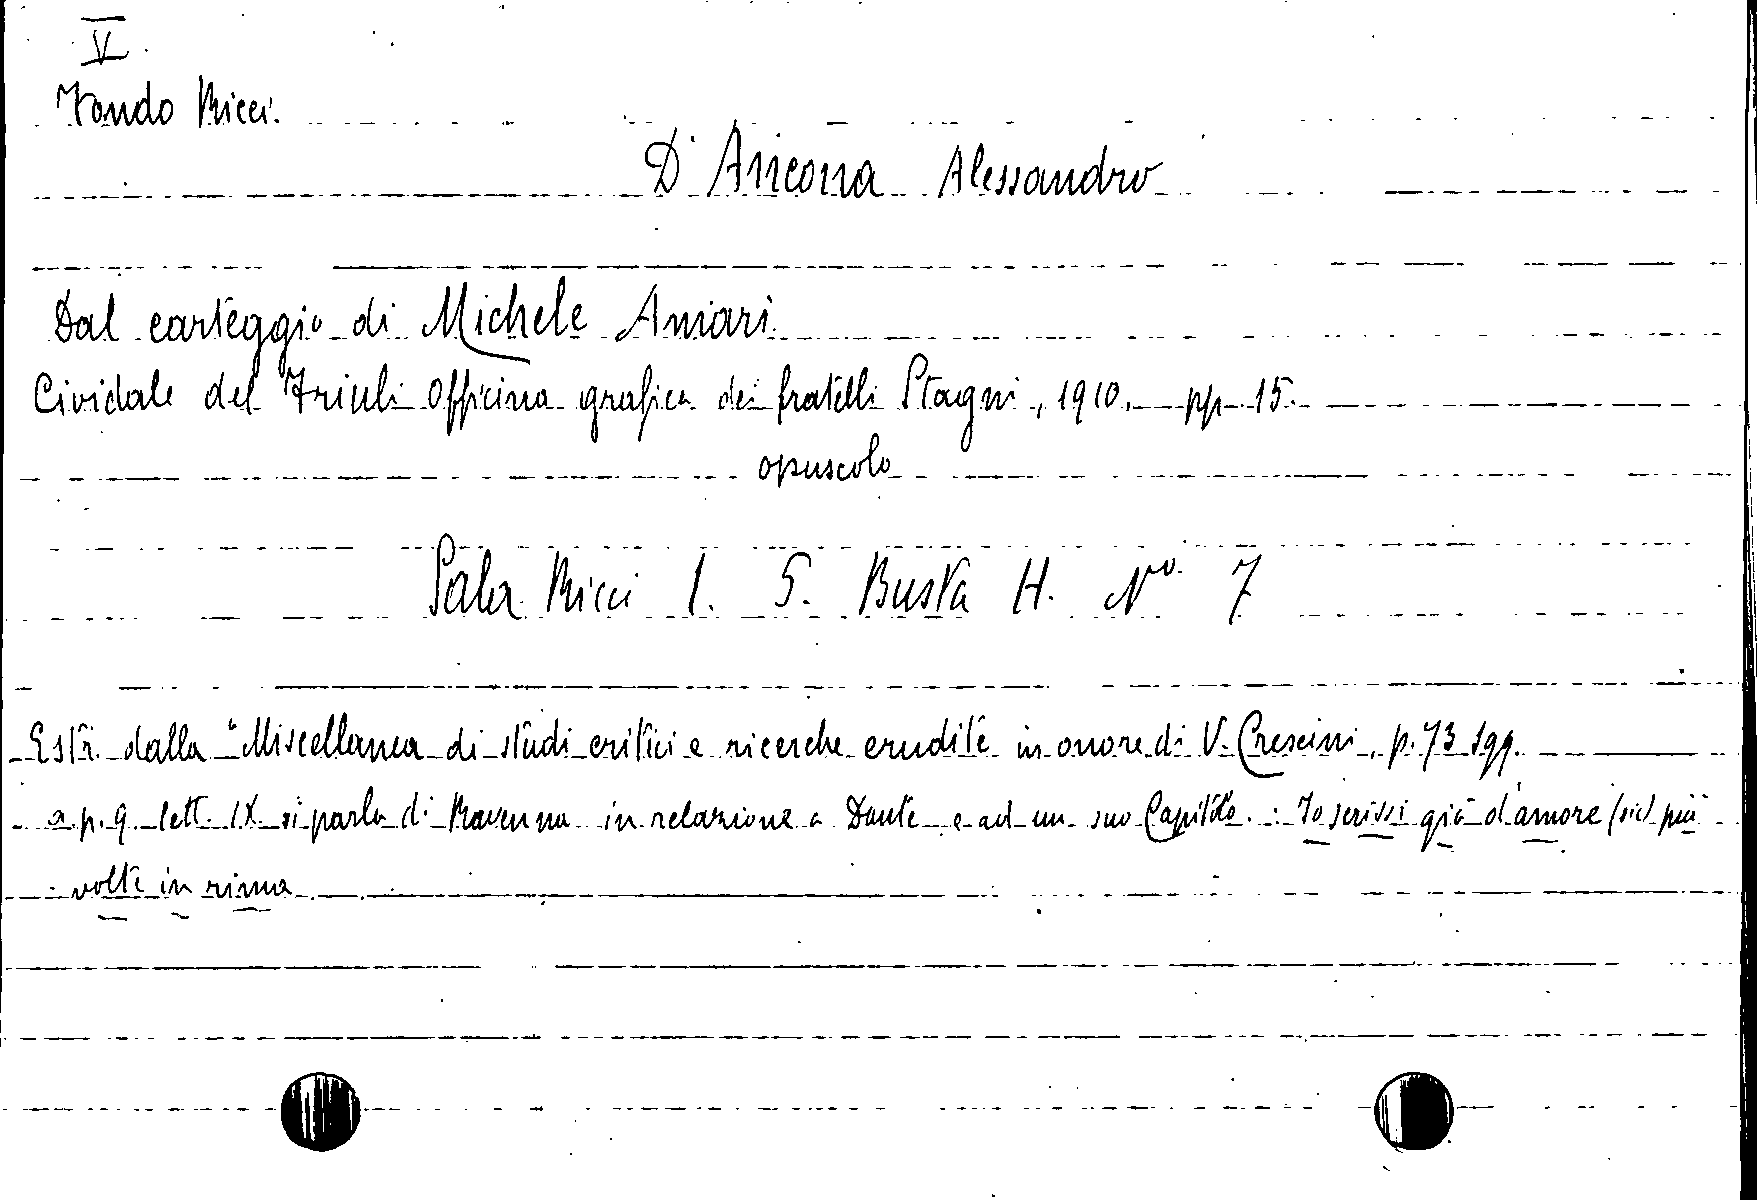 V
Fondo Ricci.
D'Ancona Alessandro
Dal carteggio di Michele Amari.
Cividale del Friuli Officina grafica dei fratelli Stagni, 1910. pp. 15.
opuscolo
Sala Ricci 1. 5. Busta H. No. 7
Estr. dalla "Miscellanea di studi critici e ricerche erudite in onore di V. Crescini, p. 73 sgg.
a p. 9 lett. IX si parla di Ravenna in relazione a Dante e ad un suo Capitolo. : Io scrissi già d'amore (sic) più
volte in rima